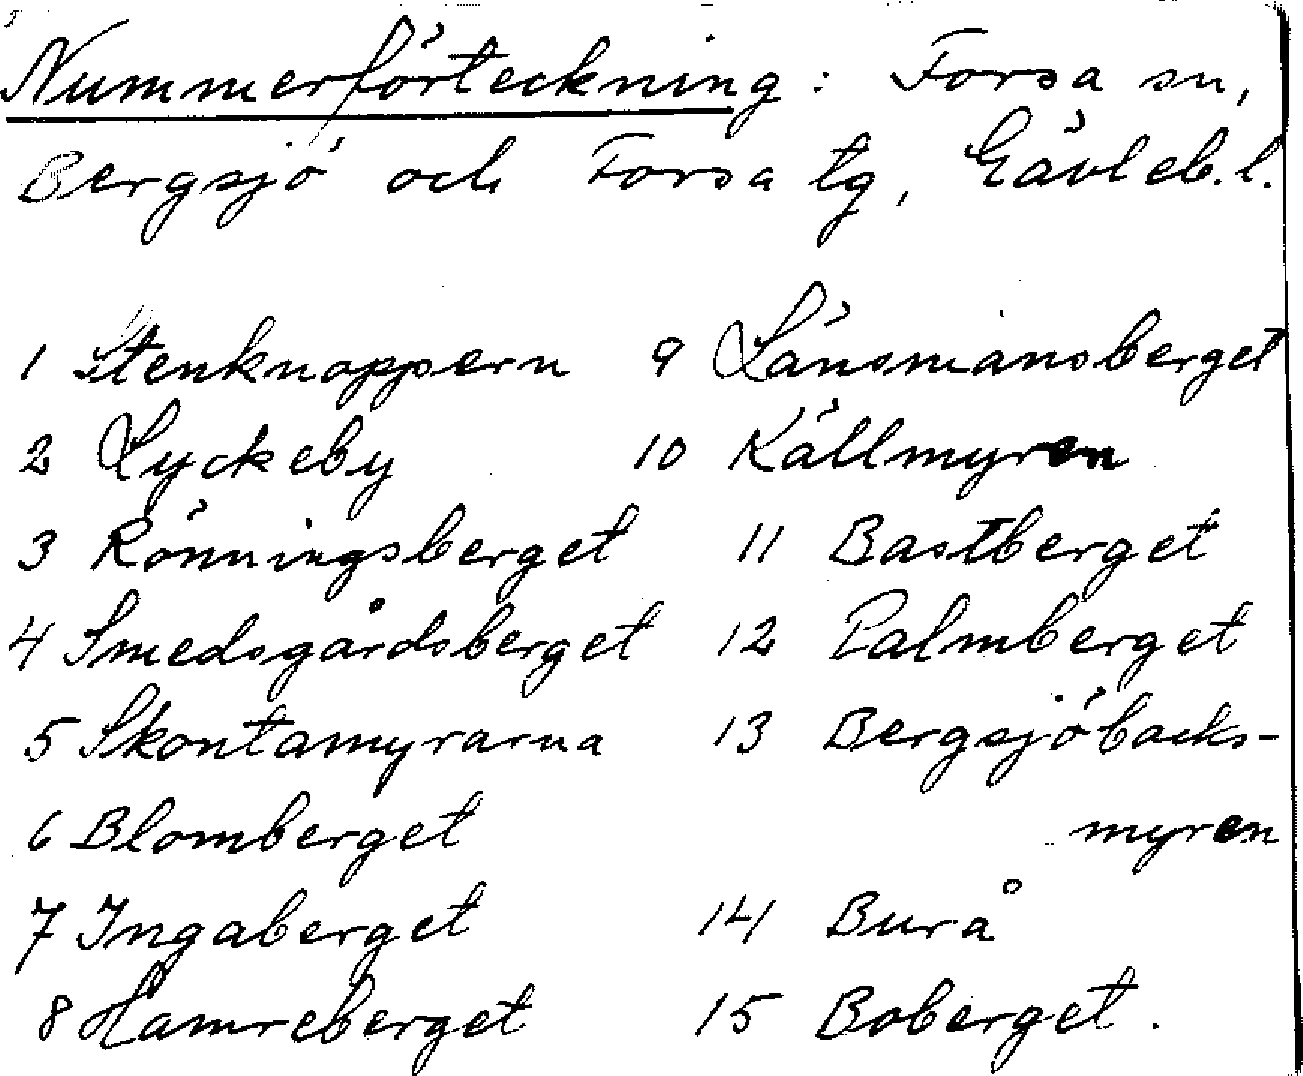 Nummerförteckning: Forsa sn,
Bergsjö och Forsa tg, Gävleb.l.
1 Stenknoppern
2 Lyckeby
3 Rönningsberget
4 Smedsgårdsberget
5 Skontamyrarna
6 Blomberget
7 Ingaberget
8 Hamreberget
9 Länsmansberget
10 Källmyren
11 Bastberget
12 Palmberget
13 Bergsjöbacks-
myren
14 Burå
15 Boberget.